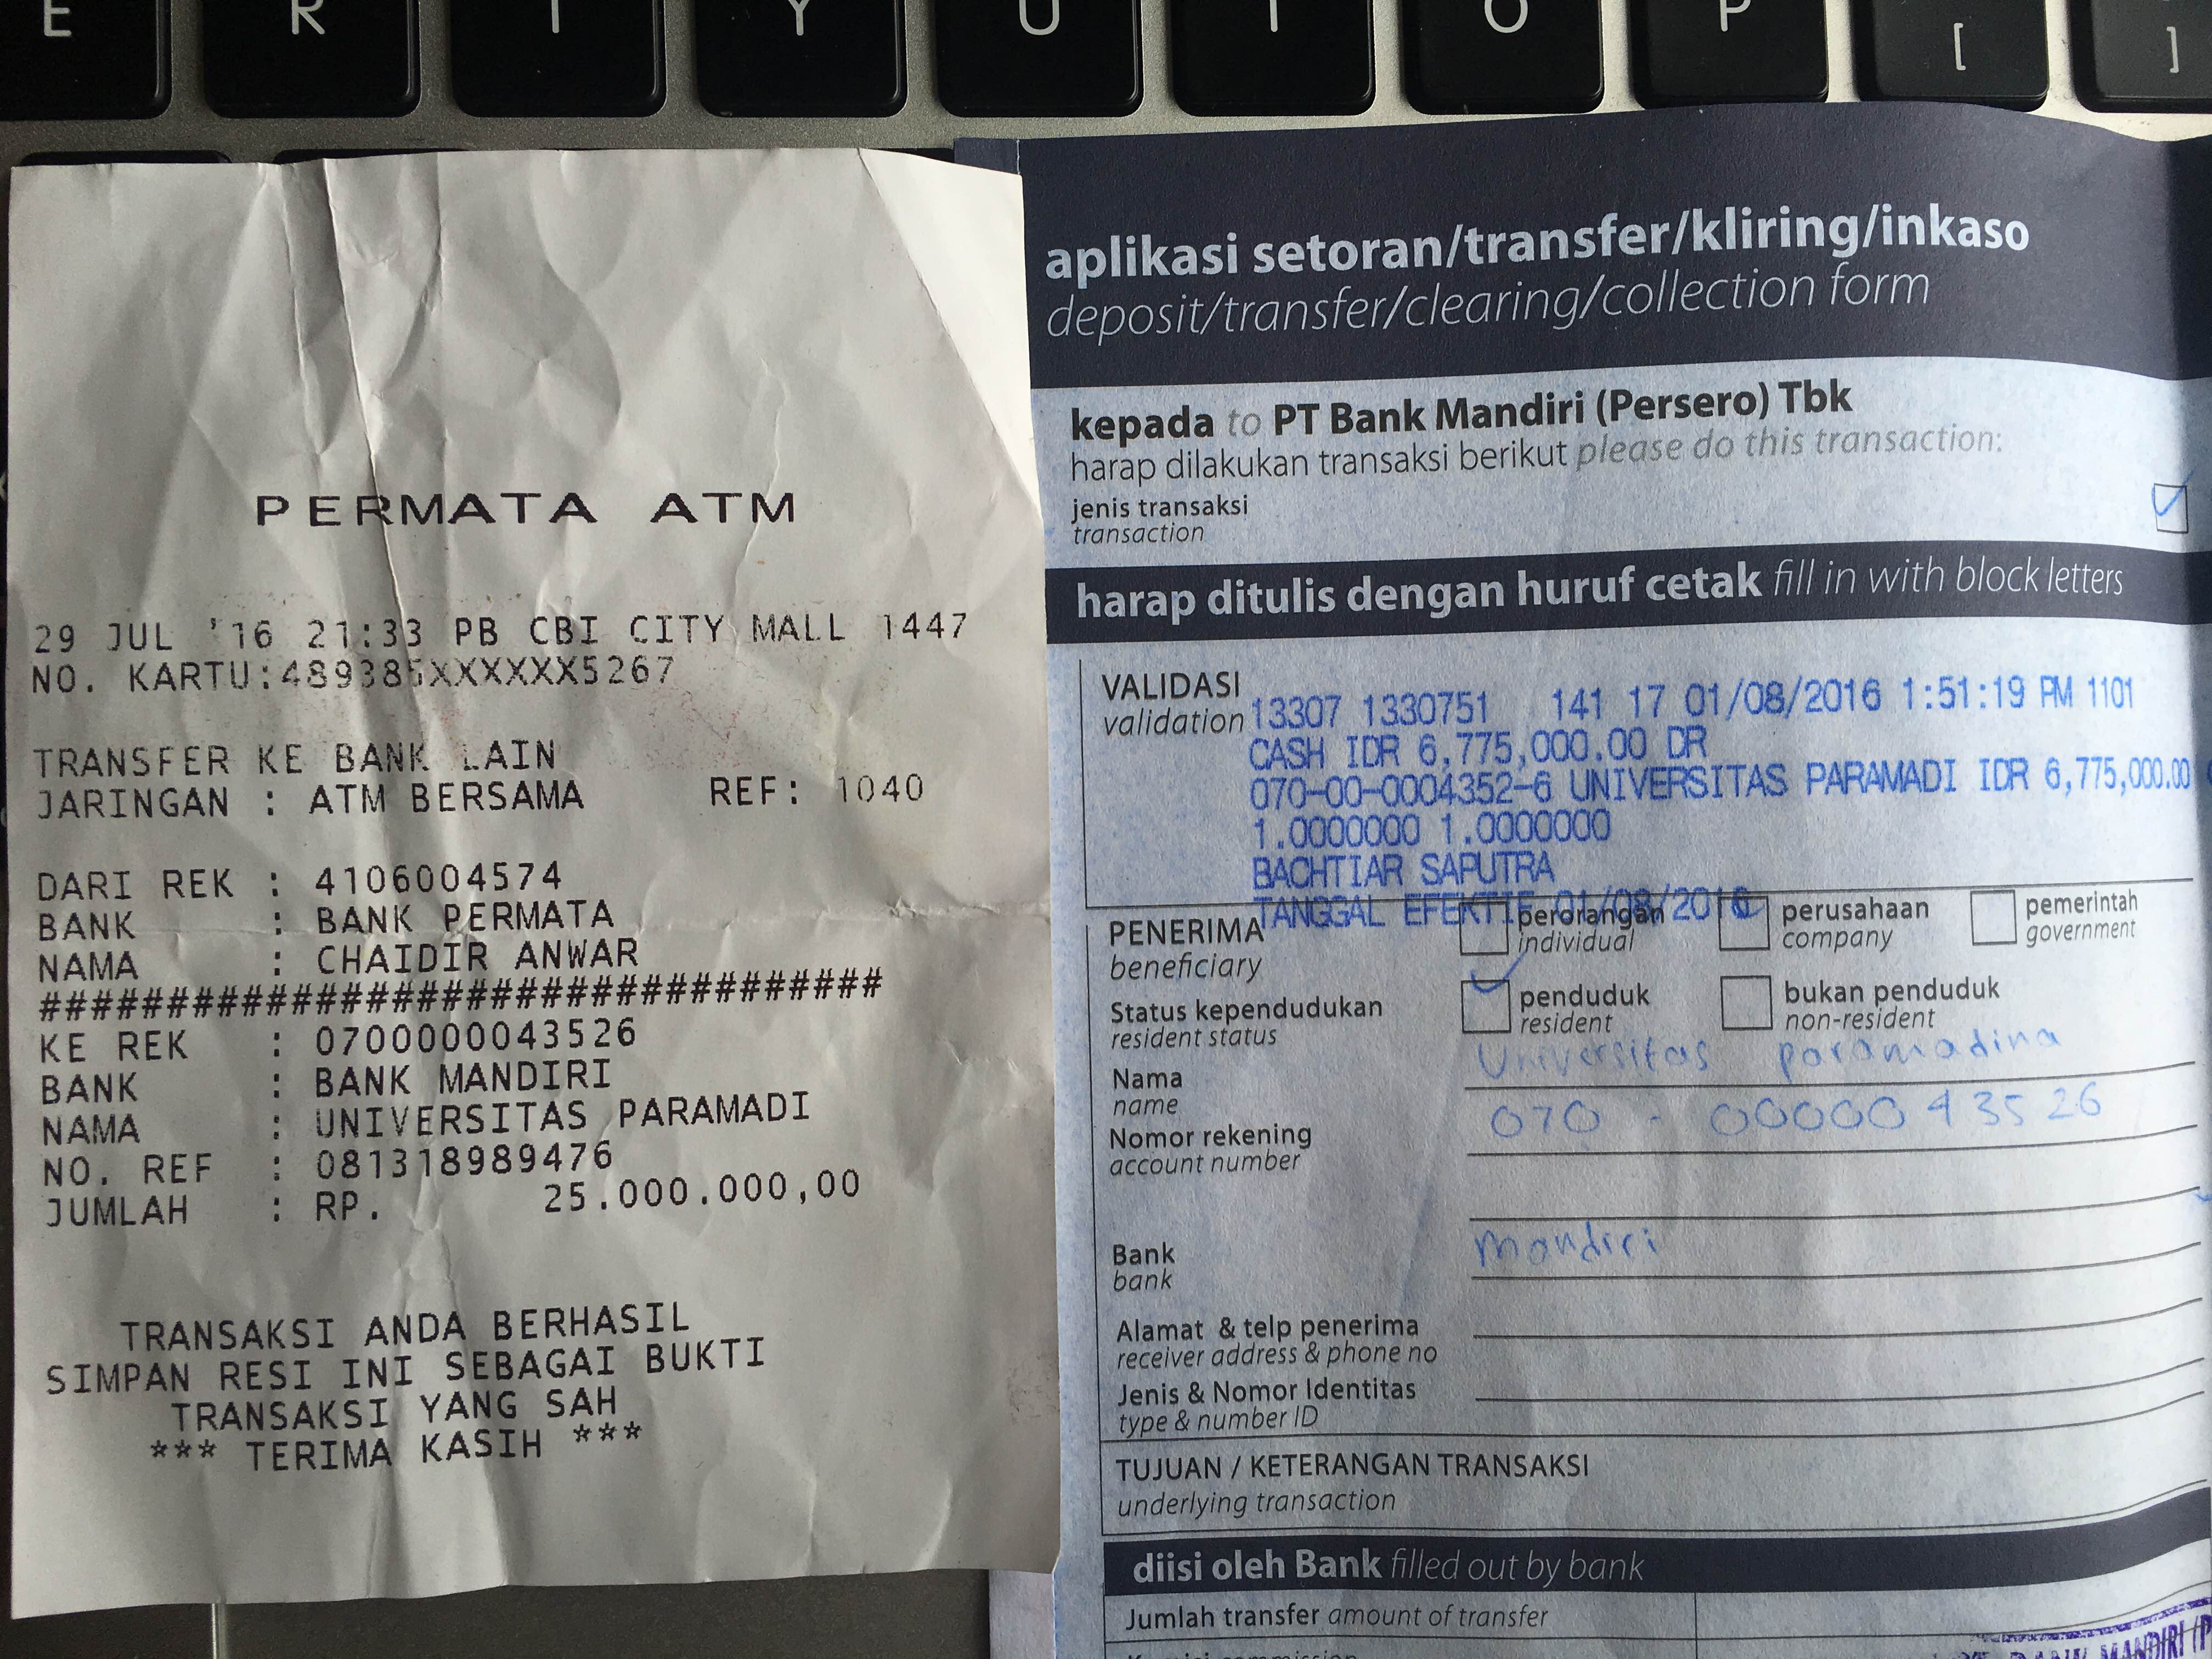 PERMATA ATM
29 JUL '16 21:33 PB CBI CITY MALL 1447
NO. KARTU:489385XXXXXX5267
TRANSFER KE BANK LAIN
JARINGAN : ATM BERSAMA REF: 1040
DARI REK : 4106004574
BANK : BANK PERMATA
NAMA : CHAIDIR ANWAR
################################
KE REK : 0700000043526
BANK : BANK MANDIRI
NAMA : UNIVERSITAS PARAMADI
NO. REF : 081318989476
JUMLAH : RP. 25.000.000,00
TRANSAKSI ANDA BERHASIL
SIMPAN RESI INI SEBAGAI BUKTI
TRANSAKSI YANG SAH
*** TERIMA KASIH ***
aplikasi setoran/transfer/kliring/inkaso
deposit/transfer/clearing/collection form
kepada to PT Bank Mandiri (Persero) Tbk
harap dilakukan transaksi berikut please do this transaction:
jenis transaksi
transaction
harap ditulis dengan huruf cetak fill in with block letters
VALIDASI
validation
13307 1330751 141 17 01/08/2016 1:51:19 PM 1101
CASH IDR 6,775,000.00 DR
070-00-0004352-6 UNIVERSITAS PARAMADI IDR 6,775,000.00
1.0000000 1.0000000
BACHTIAR SAPUTRA
TANGGAL EFEKTIF 01/08/2016
PENERIMA
beneficiary
perorangan
individual
perusahaan
company
pemerintah
government
Status kependudukan
resident status
penduduk
resident
bukan penduduk
non-resident
Nama
name
Universitas paramadina
Nomor rekening
account number
070 - 00000 43526
Bank
bank
Mandiri
Alamat & telp penerima
receiver address & phone no
Jenis & Nomor Identitas
type & number ID
TUJUAN / KETERANGAN TRANSAKSI
underlying transaction
diisi oleh Bank filled out by bank
Jumlah transfer amount of transfer
E
R
T
Y
U
I
O
P
[
]